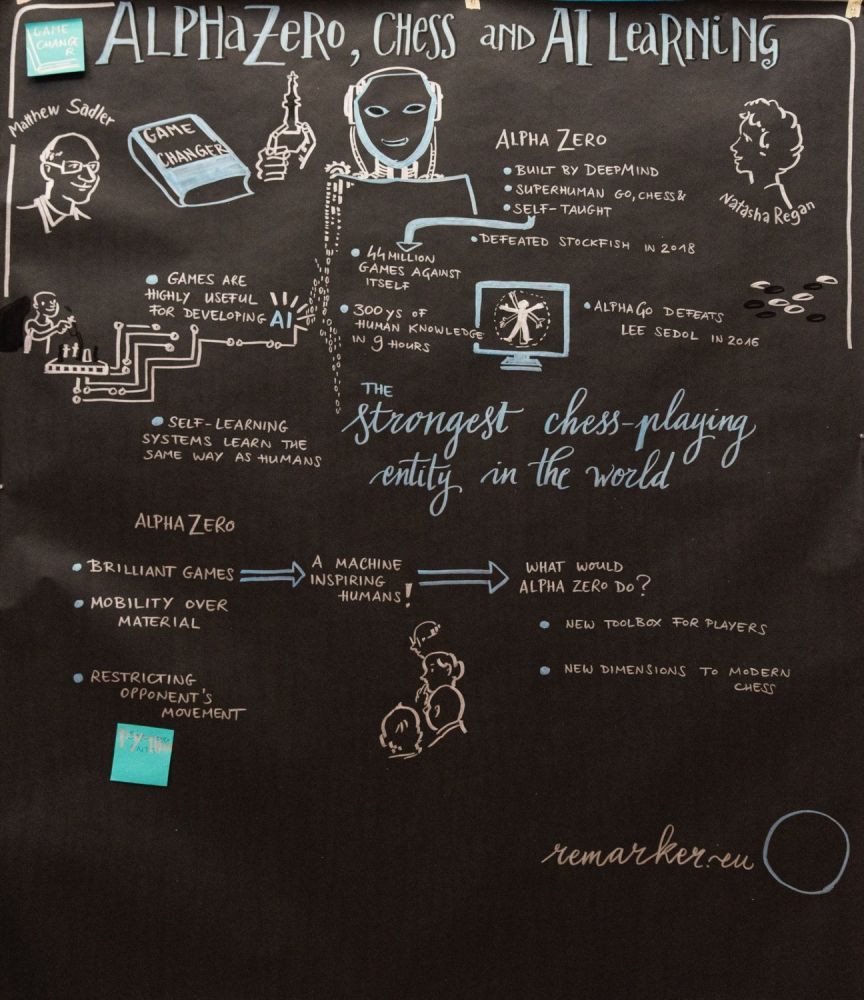 GAME
CHANGER
ALPHaZeRo, CHess AND AI LeaRNiNG
Matthew Sadler
GAME
CHANGER
ALPHA ZERO
BUILT BY DEEPMIND
SUPERHUMAN GO, CHESS &
SELF-TAUGHT
DEFEATED STOCKFISH IN 2018
Natasha Regan
44 MILLION
GAMES AGAINST
ITSELF
300 YS OF
HUMAN KNOWLEDGE
IN 9 HOURS
GAMES ARE
HIGHLY USEFUL
FOR DEVELOPING AI
ALPHAGO DEFEATS
LEE SEDOL IN 2016
SELF-LEARNING
SYSTEMS LEARN THE
SAME WAY AS HUMANS
THE
strongest chess-playing
entity in the world
ALPHA ZERO
BRILLIANT GAMES
MOBILITY OVER
MATERIAL
RESTRICTING
OPPONENT'S
MOVEMENT
A MACHINE
INSPIRING
HUMANS!
WHAT WOULD
ALPHA ZERO DO?
NEW TOOLBOX FOR PLAYERS
NEW DIMENSIONS TO MODERN
CHESS
remarker.eu